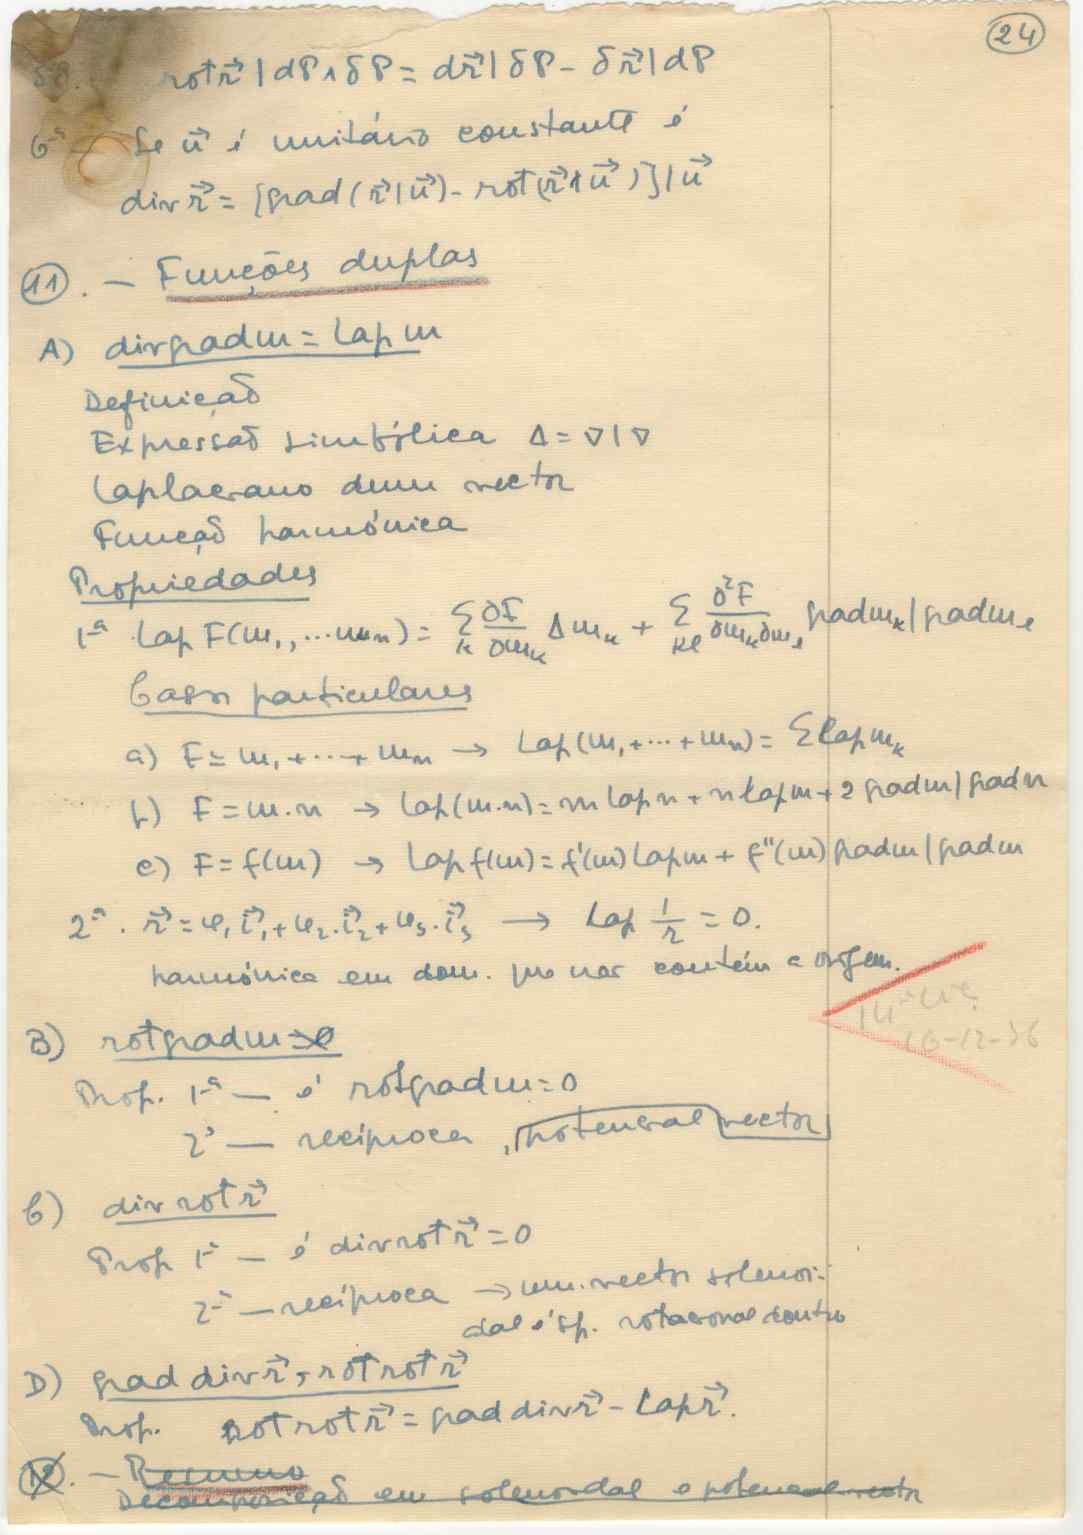 24
δP. rot r⃗ | dP ∧ δP = d r⃗ | δP - δ r⃗ | dP
6ª - Se u⃗ é unitário constante é
div r⃗ = [grad (r⃗ | u⃗) - rot (r⃗ ∧ u⃗)] | u⃗
11. - Funções duplas
A) div grad m = Lap m
Definição
Expressão simbólica Δ = ∇ | ∇
Laplaciano dum vector
Função harmónica
Propriedades
1ª Lap F(m₁, ... mₙ) = Σₖ ∂F/∂mₖ Δmₖ + Σₖₗ ∂²F/∂mₖ∂mₗ grad mₖ | grad mₗ
Casos particulares
a) F = m₁ + ... + mₙ → Lap (m₁ + ... + mₙ) = Σ Lap mₖ
b) F = m.n → Lap (m.n) = m Lap n + n Lap m + 2 grad m | grad n
c) F = f(m) → Lap f(m) = f'(m) Lap m + f''(m) grad m | grad m
2ª. r⃗ = φ₁ i⃗₁ + φ₂. i⃗₂ + φ₃. i⃗₃ → Lap 1/r = 0.
harmónica em dom. que não contém a origem.
10-12-56
B) rot grad m = 0
Prop. 1ª — é rot grad m = 0
2ª — recíproca, potencial vector
C) div rot r⃗
Prop 1ª — é div rot r⃗ = 0
2ª — recíproca → um vector solenoi-
dal é sp. rotacional doutro
D) grad div r⃗, rot rot r⃗
Prop. rot rot r⃗ = grad div r⃗ - Lap r⃗.
12. - Resumo
Decomposição em solenoidal e potencial vector